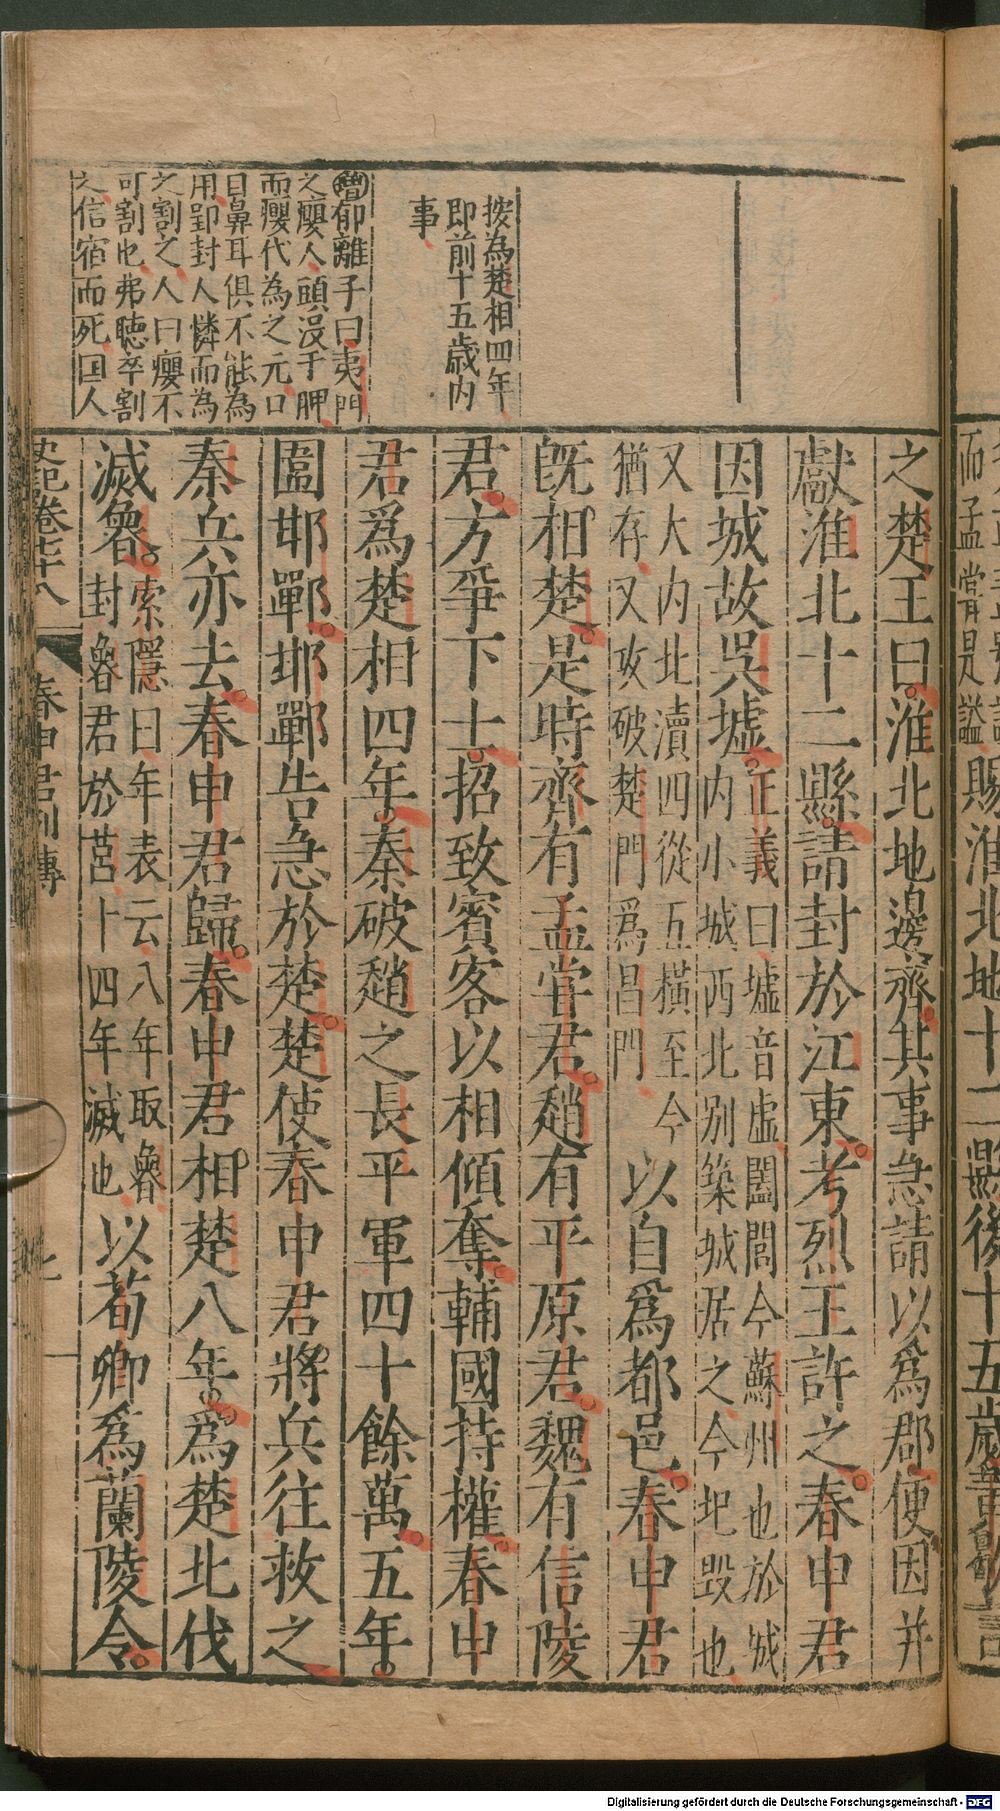 之楚王曰淮北地邊齊其事急請以爲郡便因并
獻淮北十二縣請封於江東考烈王許之春申君
因城故吳墟正義曰墟音虛闔閭今蘇州也於城
内小城西北别築城居之今圯毁也
又大内北瀆四從五橫至今
猶存又攻破楚門爲昌門
以自爲都邑春申君
旣相楚是時齊有孟嘗君趙有平原君魏有信陵
君方爭下士招致賓客以相傾奪輔國持權春申
君爲楚相四年秦破趙之長平軍四十餘萬五年
圍邯鄲邯鄲告急於楚楚使春申君將兵往救之
秦兵亦去春申君歸春申君相楚八年爲楚北伐
滅魯索隱曰年表云八年取魯
封魯君於莒十四年滅也
以荀卿爲蘭陵令
按為楚相四年
即前十五歲内
事
增郁離子曰夷門
之癭人頭没于胛
而癭代為之元口
目鼻耳俱不能為
用郢封人憐而為
之割之人曰癭不
可割也弗聴卒割
之信宿而死国人
史記卷七十八
春申君列傳
七
而孟嘗是謚
賜淮北地十二縣後十五歲黃歇言
Digitalisierung gefördert durch die Deutsche Forschungsgemeinschaft - DFG